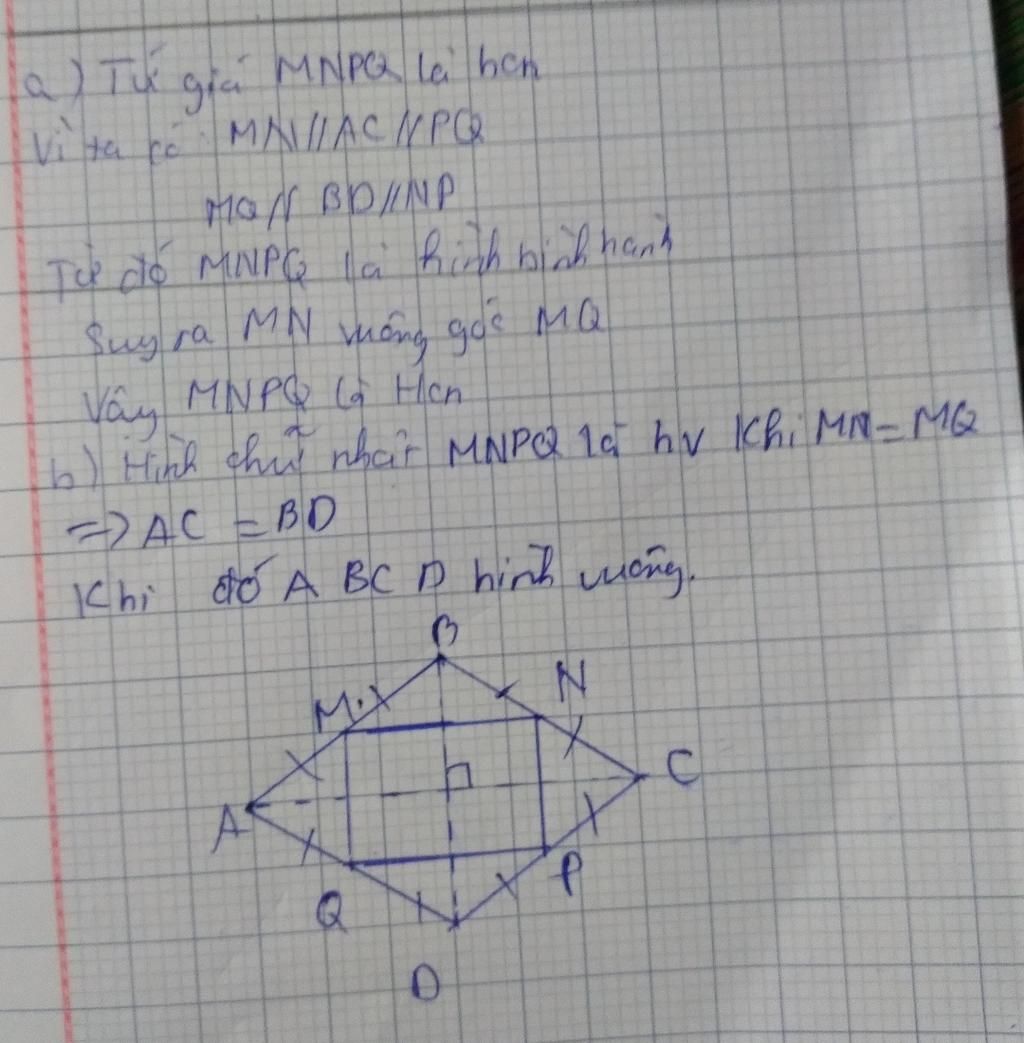 a) Tứ giá MNPQ là hcn
Vì ta có MN//AC//PQ
MQ// BD//NP
Từ đó MNPQ là hình bình hành
Suy ra MN vuông góc MQ
Vậy MNPQ là Hcn
b) Hình chữ nhật MNPQ là hv Khi MN=MQ
=> AC = BD
Khi đó A BC D hình vuông.
B
M
N
A
C
Q
P
D